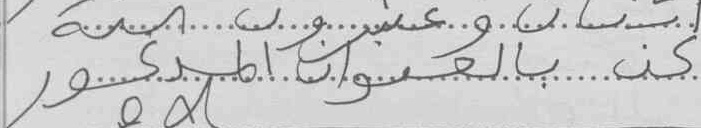 اثنان وعشرون سنة
كن بالعنوان المذكور